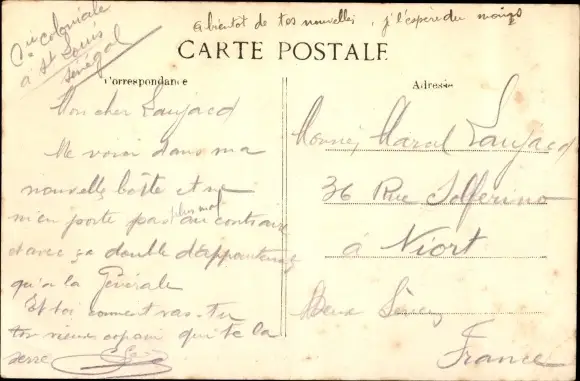 Cie coloniale
à St Louis
Sénégal
a bientôt de tes nouvelles, j'l'espère du moins
CARTE POSTALE
Correspondance
Adresse
Mon cher Laujacd
Me voici dans ma
nouvelle boîte et ne
m'en porte pas plus mal au contraire
et avec ça double d'appointements
qu'à la Générale
Et toi comment vas-tu
ton vieux copain qui te la
serre
Marcel Laujacd
36 Rue Solferino
à Niort
Deux Sèvres
France